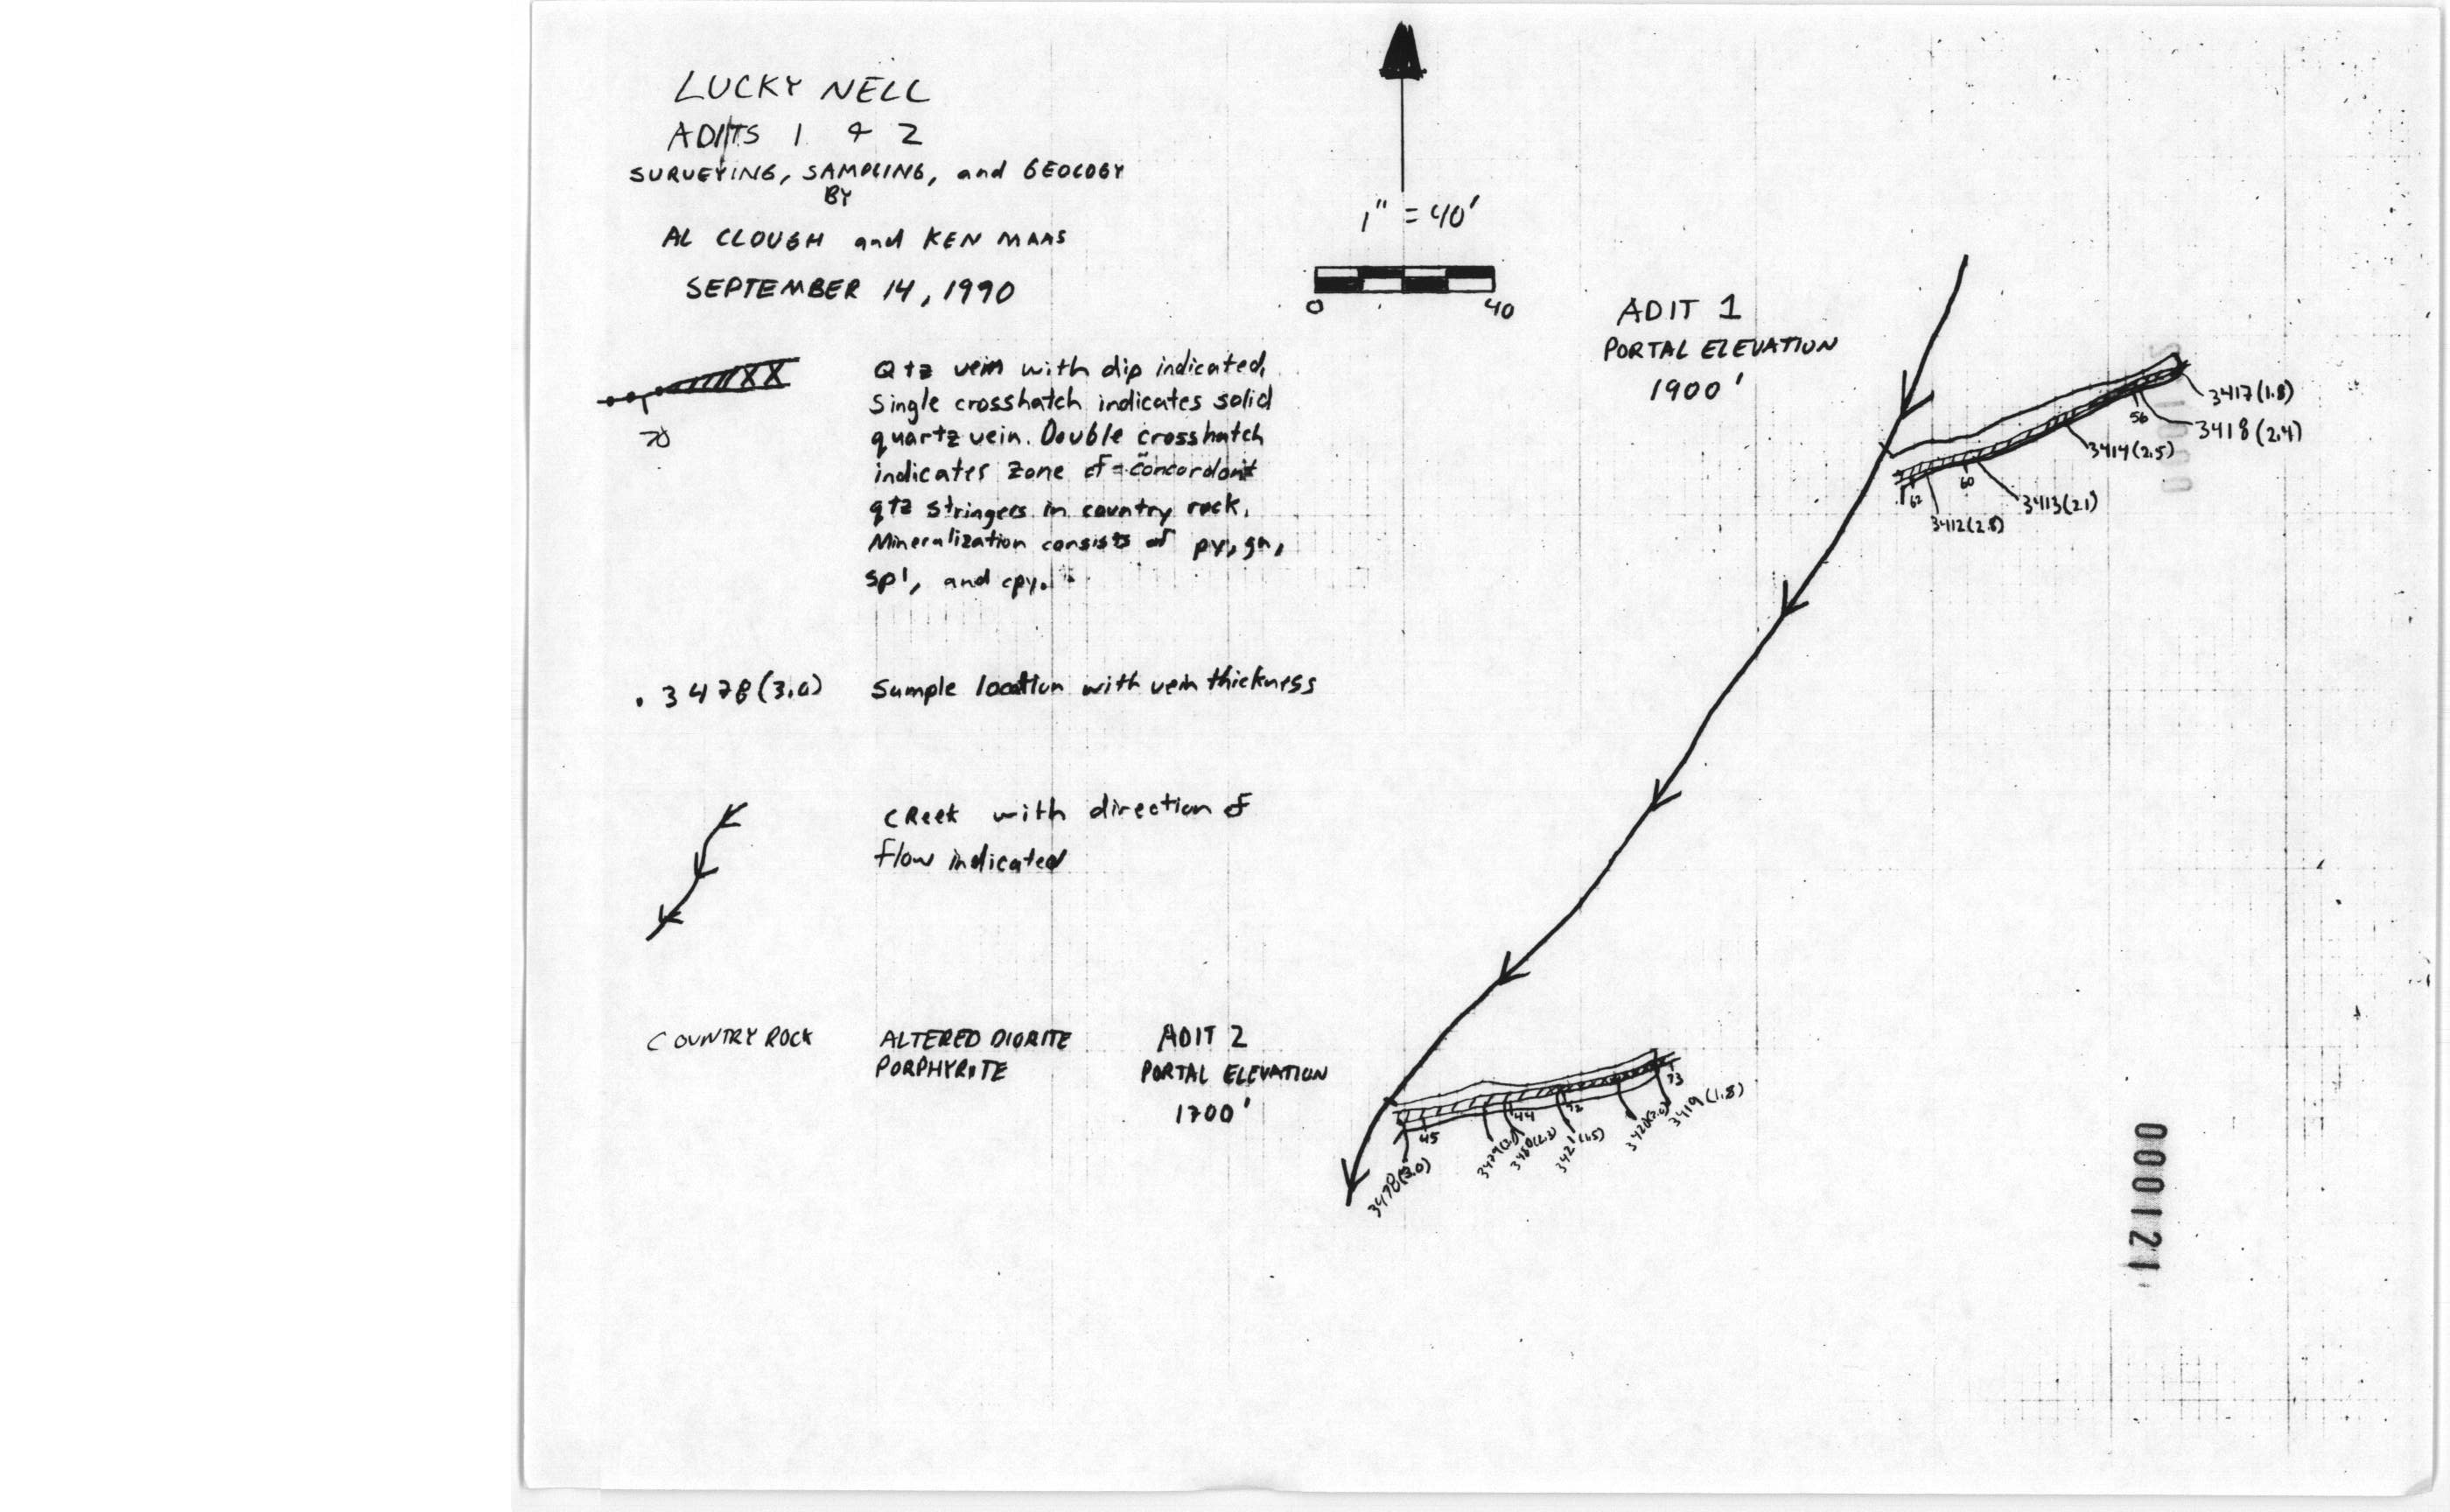 LUCKY NELL
ADITS 1 & 2
SURVEYING, SAMPLING, and GEOLOGY
BY
AL CLOUGH and KEN MAAS
SEPTEMBER 14, 1990
1" = 40'
0 40
Qtz vein with dip indicated,
Single crosshatch indicates solid
quartz vein. Double crosshatch
indicates zone of concordant
qtz stringers in country rock.
Mineralization consists of py, gn,
spl, and cpy.
70
.3478(3.0) Sample location with vein thickness
CReek with direction of
flow indicated
COUNTRY ROCK ALTERED DIORITE
PORPHYRITE
ADIT 1
PORTAL ELEVATION
1900'
3417(1.8)
56
3418(2.4)
3414(2.5)
60
3413(2.1)
62
3412(2.8)
ADIT 2
PORTAL ELEVATION
1700'
73
3419(1.8)
3421(1.5)
44
45
3478(3.0)
000121